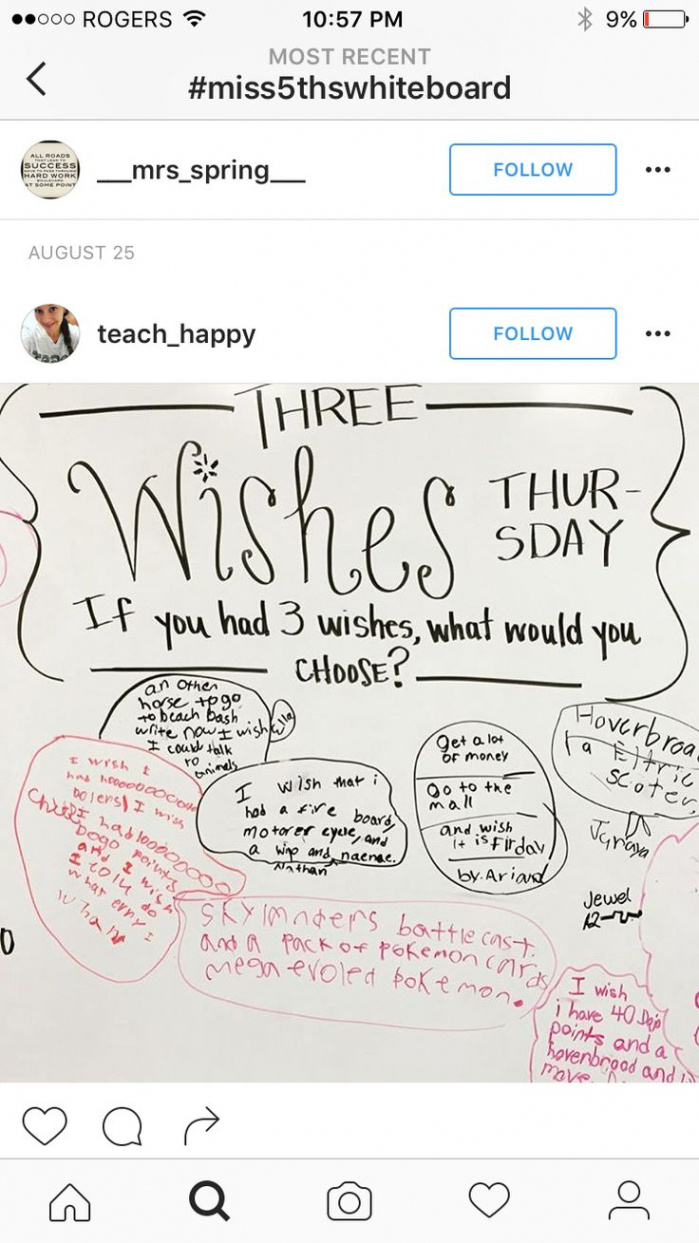 ROGERS 10:57 PM 9%
MOST RECENT
#miss5thswhiteboard
ALL ROADS
THAT LEAD TO
SUCCESS
HAVE TO PASS THROUGH
HARD WORK
BOULEVARD
AT SOME POINT
___mrs_spring___
FOLLOW
AUGUST 25
teach_happy
FOLLOW
THREE
Wishes
THUR-
SDAY
If you had 3 wishes, what would you
CHOOSE?
an other
horse to go
to beach bash
write now I wish
I could talk
to animals
Ella
I wish I
had
dolers I wish
I had
Dogo points
and I wish
I
what
I wish that i
had a fire board,
motorer cycle, and
a wip and naenae.
Nathan
Get a lot
of money
Go to the
mall
and wish
it is firday
by. Ariana
Hoverbroa
a Eltric
scoter
Jewel
A2
battle cast.
and a pack of pokemon cards
mega evoled pokemon.
I wish
i have 40 Dojo
points and a
hovenbrood and
move